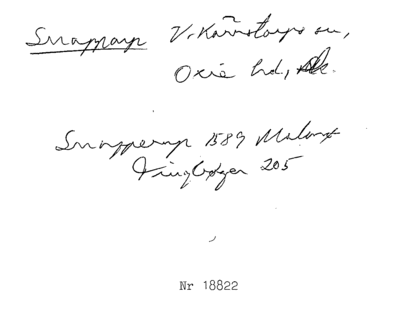 Snapparp V. Kärrstorps sn,
Oxie hd,
Snapperup 1589 Malmö
Tingbøger 205
Nr 18822